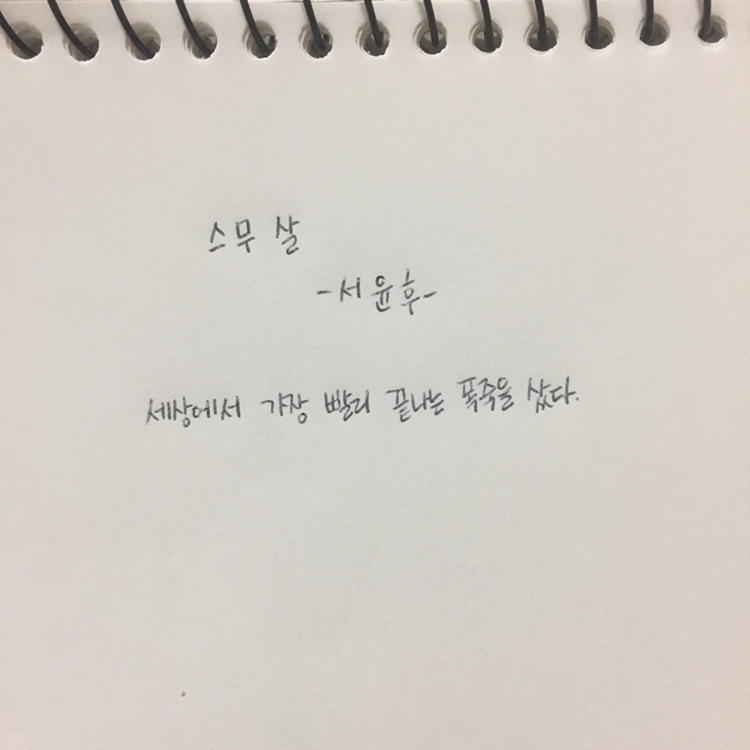 스무 살
-서윤후-
세상에서 가장 빨리 끝나는 폭죽을 샀다.